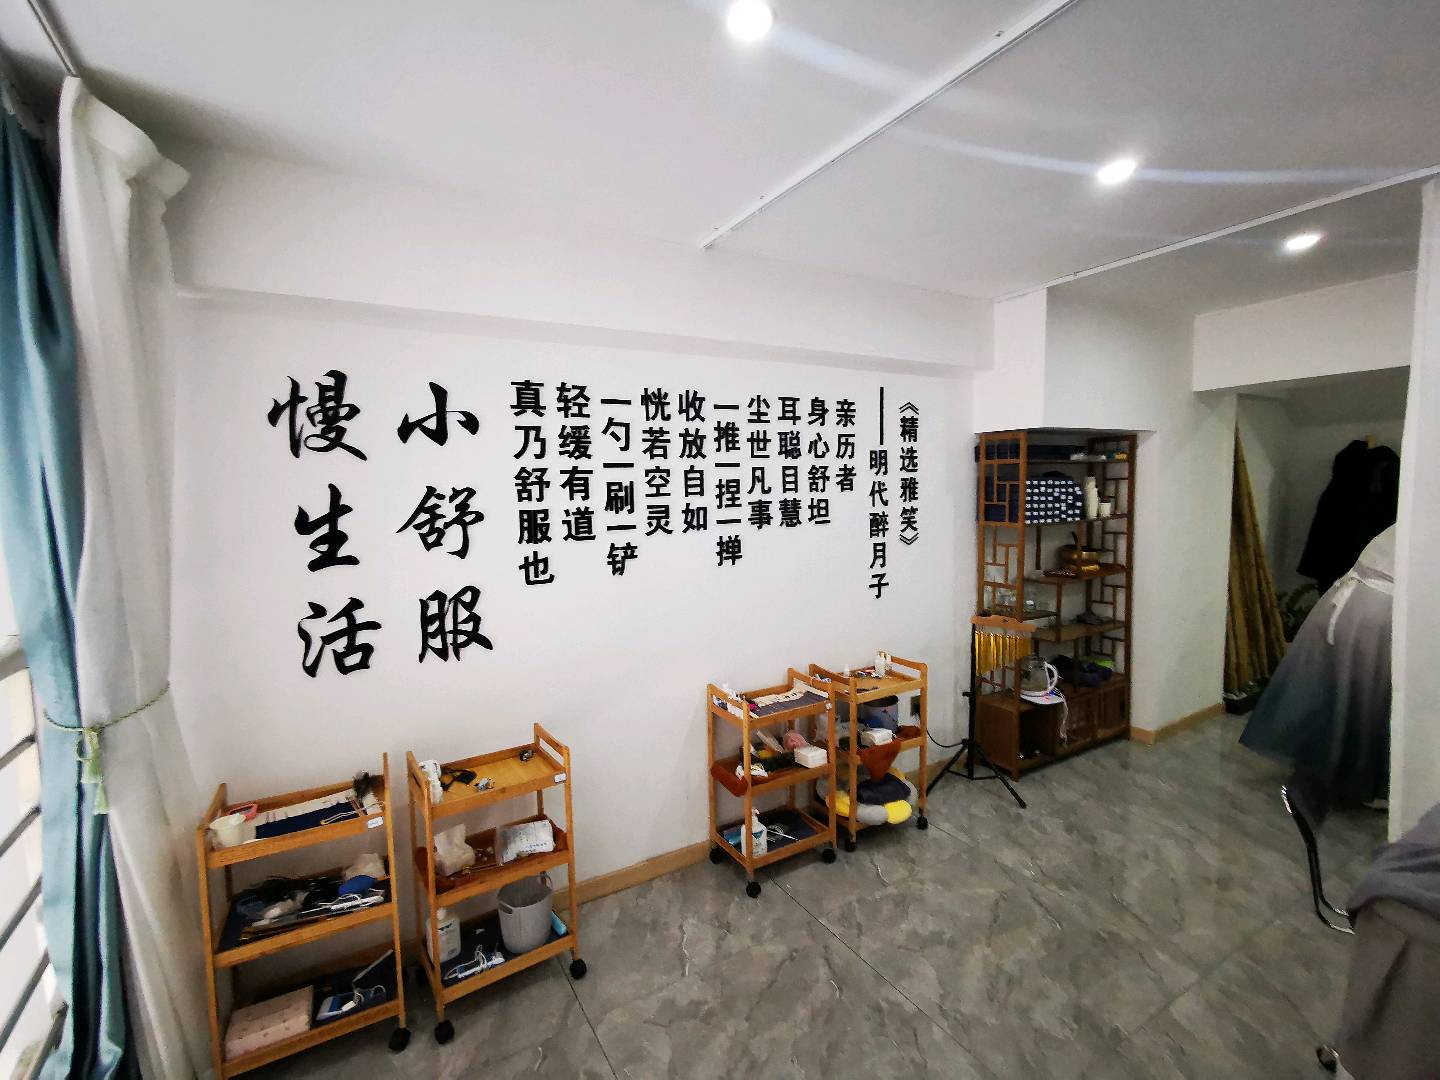 慢生活
小舒服
真乃舒服也
轻缓有道
一勺一刷一铲
恍若空灵
收放自如
一推一捏一掸
尘世凡事
耳聪目慧
身心舒坦
亲历者
——明代醉月子
《精选雅笑》